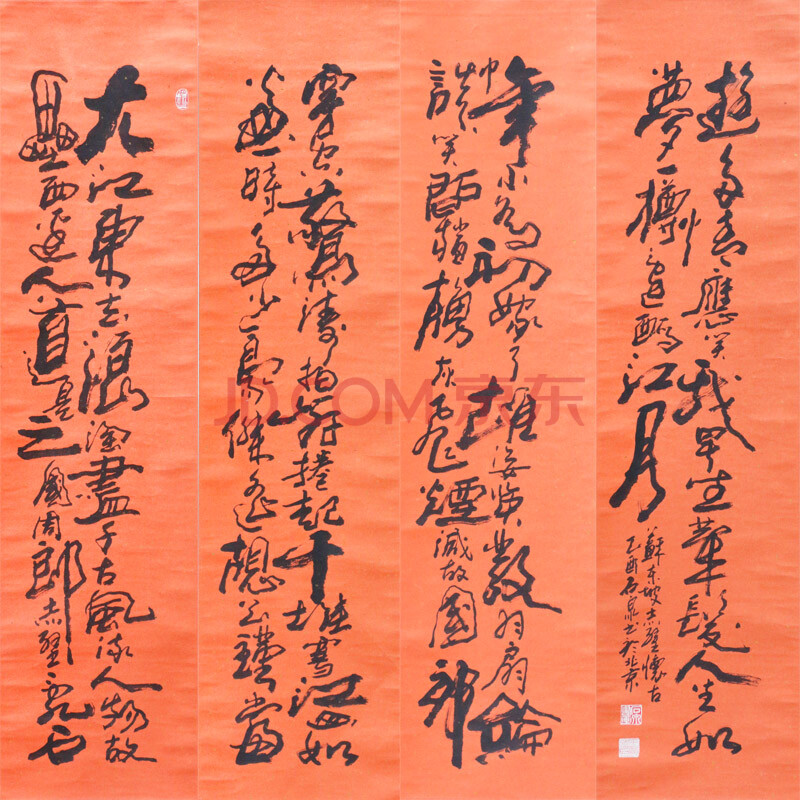 大江東去浪淘盡千古風流人物故
壘西邊人道是三國周郎赤壁亂石
穿空驚濤拍岸捲起千堆雪江山如
畫一時多少豪傑遙想公瑾當
年小喬初嫁了雄姿英發羽扇綸
巾談笑間檣櫓灰飛煙滅故國神
遊多情應笑我早生華髮人生如
夢一樽還酹江月
蘇東坡赤壁懷古
乙酉石泉書於北京
JD.COM 京东